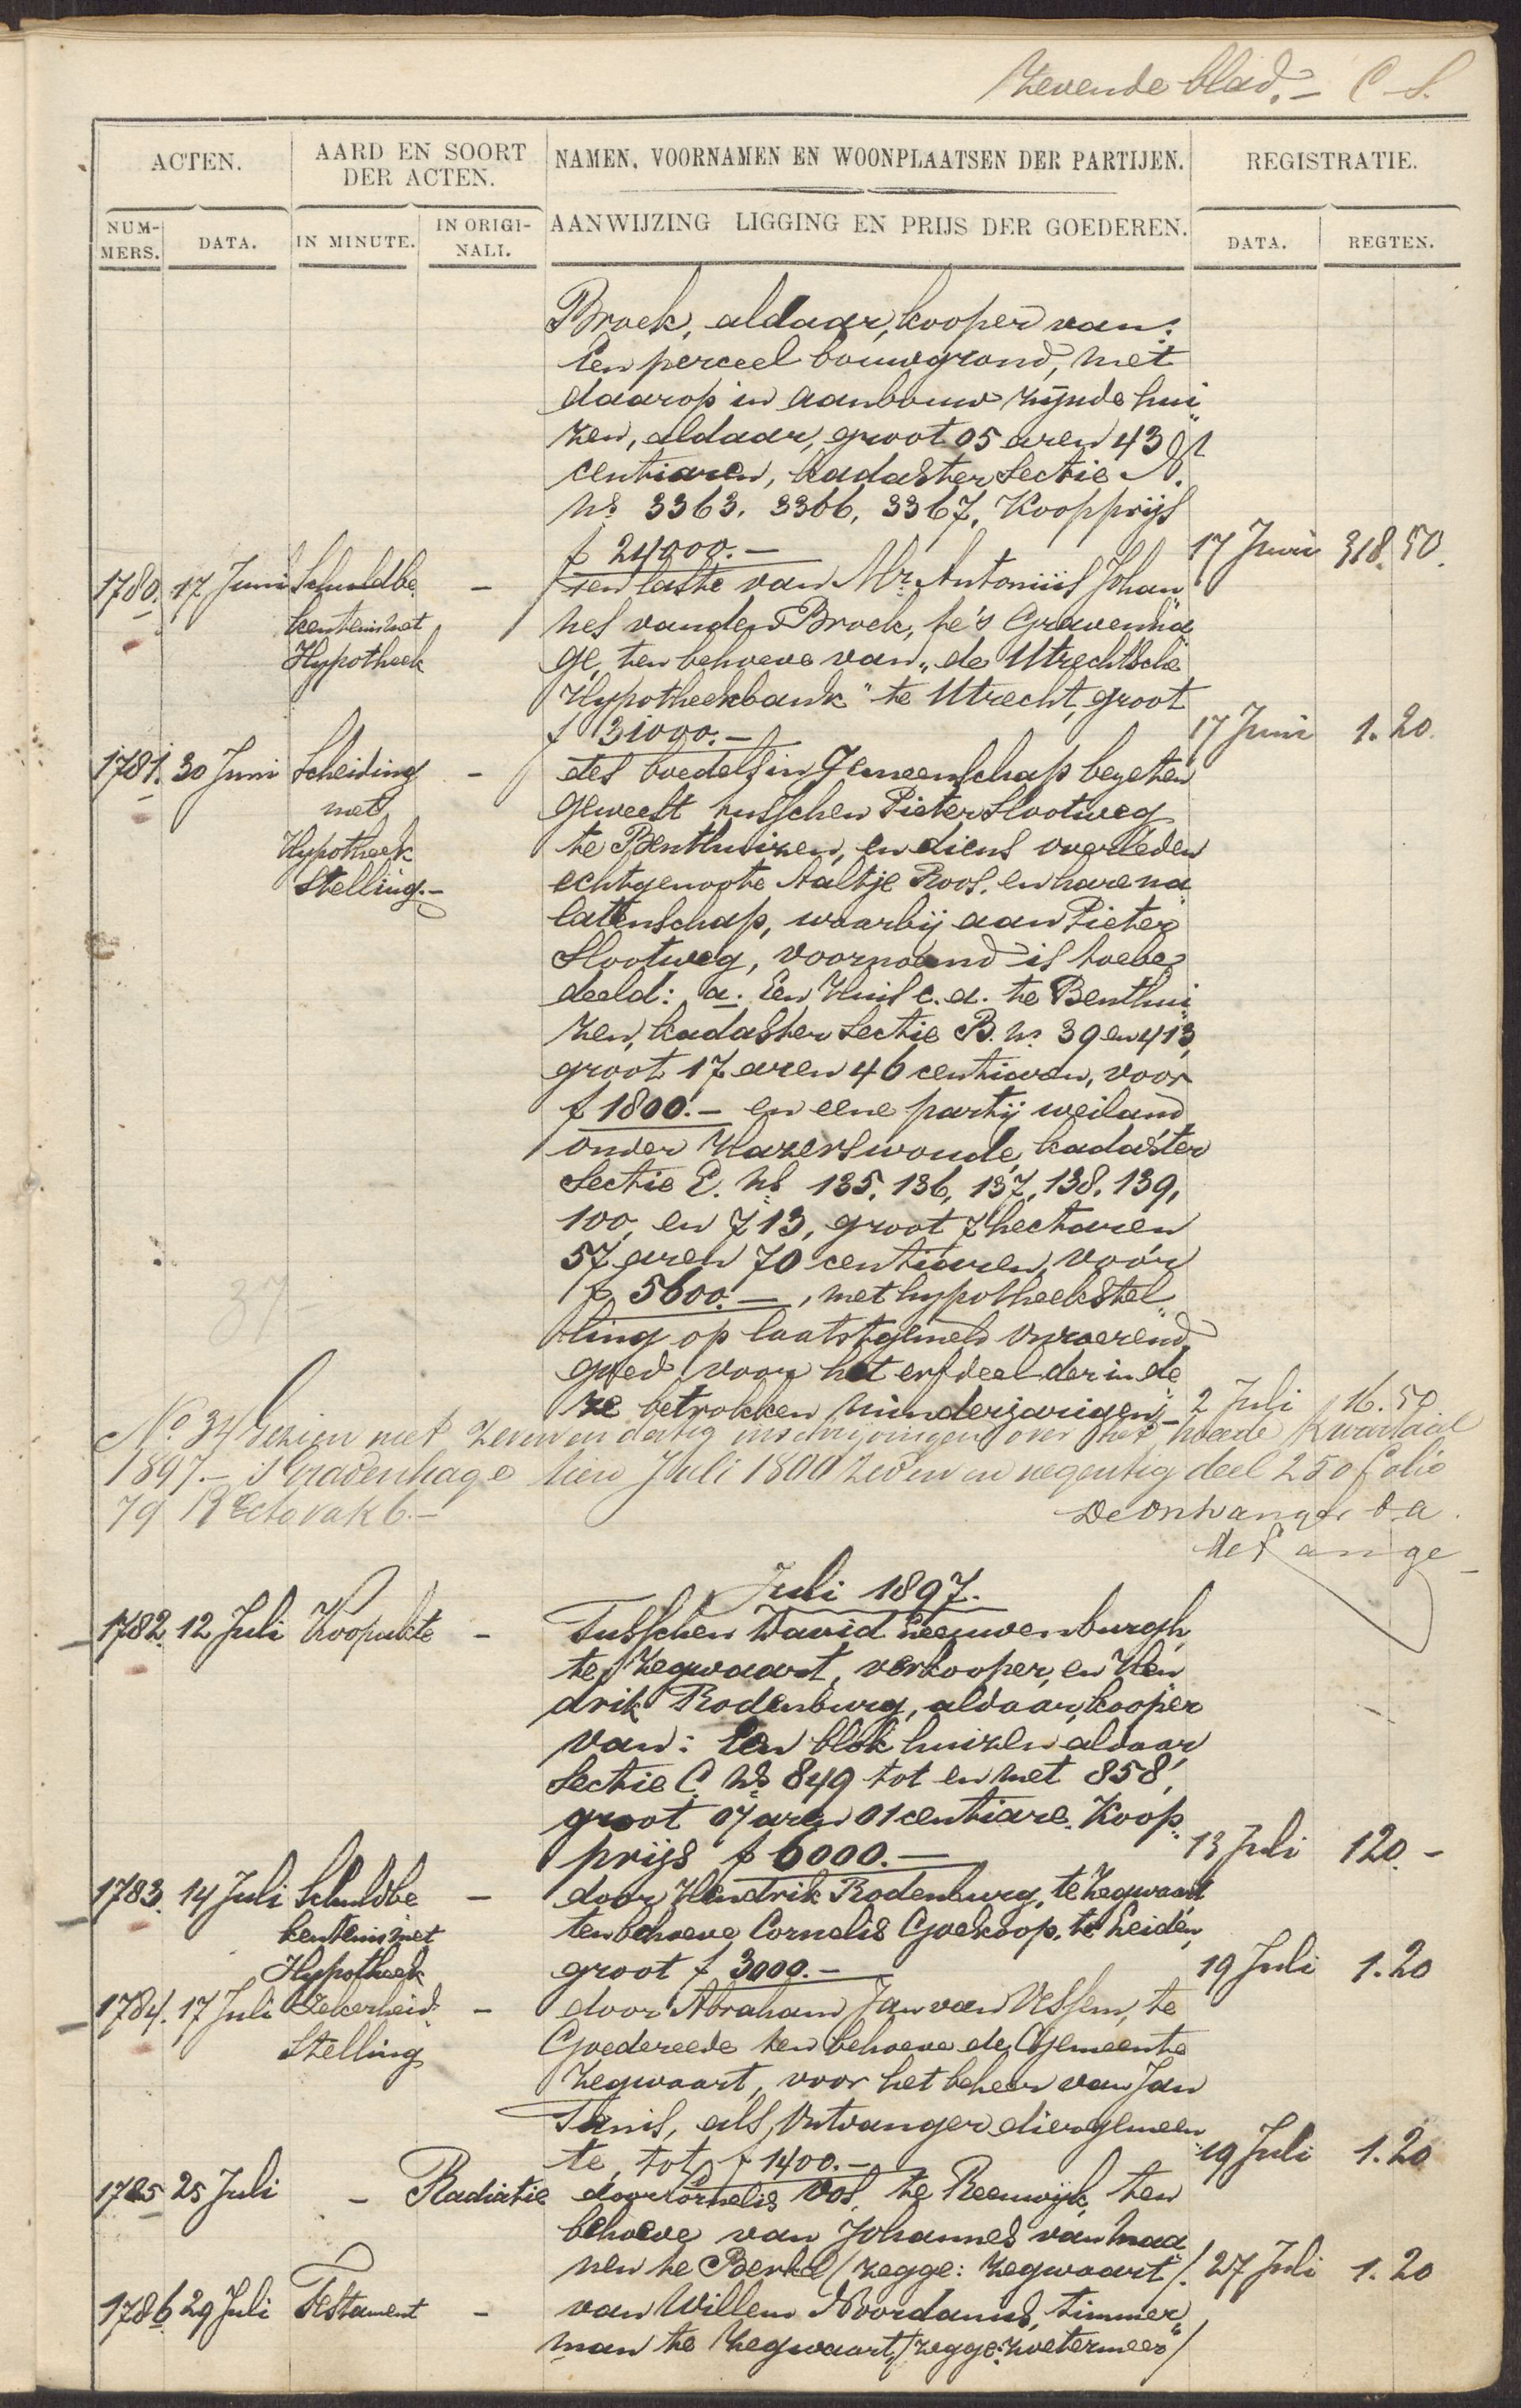 Zevende blad. - C S.
ACTEN.
AARD EN SOORT DER ACTEN.
NAMEN, VOORNAMEN EN WOONPLAATSEN DER PARTIJEN.
REGISTRATIE.
NUM-MERS.
DATA.
IN MINUTE.
IN ORIGI-NALI.
AANWIJZING LIGGING EN PRIJS DER GOEDEREN.
DATA.
REGTEN.
Broek, aldaar, kooper van:
Een perceel bouwgrond, met
daarop in aanbouw zijnde hui„
zen, aldaar, groot 05 aren 43
centiaren, kadaster Sectie
Ns 3363. 3366, 3367, Koopprijs
f 24000.- 17 Juni 318.50.
1780. 17 Juni Schuldbe - ten laste van Mr. Antonius Johan„
kentenis met nes van den Broek, te 's Gravenha„
Hypotheek ge, ten behoeve van „de Utrechtsche
Hypotheekbank" te Utrecht, groot
f 31000.- 17 Juni 1.20.
1781. 30 Juni Scheiding - des boedels in Gemeenschap bezeten
met geweest tusschen Pieter Slootweg
Hypotheek te Benthuizen, en diens overleden
Stelling.- echtgenoote Aaltje Roos, en hare na„
latenschap, waarbij aan Pieter
Slootweg, voornoemd is toebe„
deeld: a. Een Huis c.a. te Benthui„
zen, kadaster Sectie B. Ns 39 en 413,
groot 17 aren 46 centiaren, voor
f 1800.- en eene partij weiland
onder Hazerswoude, kadaster
Sectie E. Ns 135, 136, 137, 138, 139,
100, en 713, groot 7 hectaren
57 aren 70 centiaren, voor
f 5600.-, met hypotheekstel„
ling op laatstgemeld onroerend
goed voor het erfdeel der in de„
ze betrokken minderjarigen.- 2 Juli 16.50
No 34 Gezien met zeven en dertig inschrijvingen over het tweede kwartaal
1897.- 's Gravenhage tien Juli 1800 zeven en negentig deel 250 folio
79 Recto vak 6.- De Ontvanger b.a.
Juli 1897.
1782. 12 Juli Koopakte - Tusschen David Leeuwenburgh,
te Zegwaart, verkooper, en Hen„
drik Rodenburg, aldaar, kooper
van: Een blok huizen aldaar
Sectie C. Ns 849 tot en met 858,
groot 07 aren 01 centiare. Koop„
prijs f 6000.- 13 Juli 120.-
1783. 14 Juli Schuldbe - door Hendrik Rodenburg, te Zegwaart
kentenis met ten behoeve Cornelis Goekoop, te Leiden,
Hypotheek groot f 3000.- 19 Juli 1.20
1784. 17 Juli Zekerheid - door Abraham Jan van Vessem, te
Stelling Goedereede ten behoeve de Gemeente
Zegwaart, voor het beheer van Jan
Tanis, als Ontvanger dier gemeen„
te, tot f 1400.- 19 Juli 1.20
1785 25 Juli - Radiatie door Cornelis Vos, te Reeuwijk, ten
behoeve van Johannes van Maa„
nen te Berkel (zegge: Zegwaart). 27 Juli 1.20
1786 29 Juli Testament - van Willem Noordamus, timmer„
man te Zegwaart, (zegge: Zoetermeer)